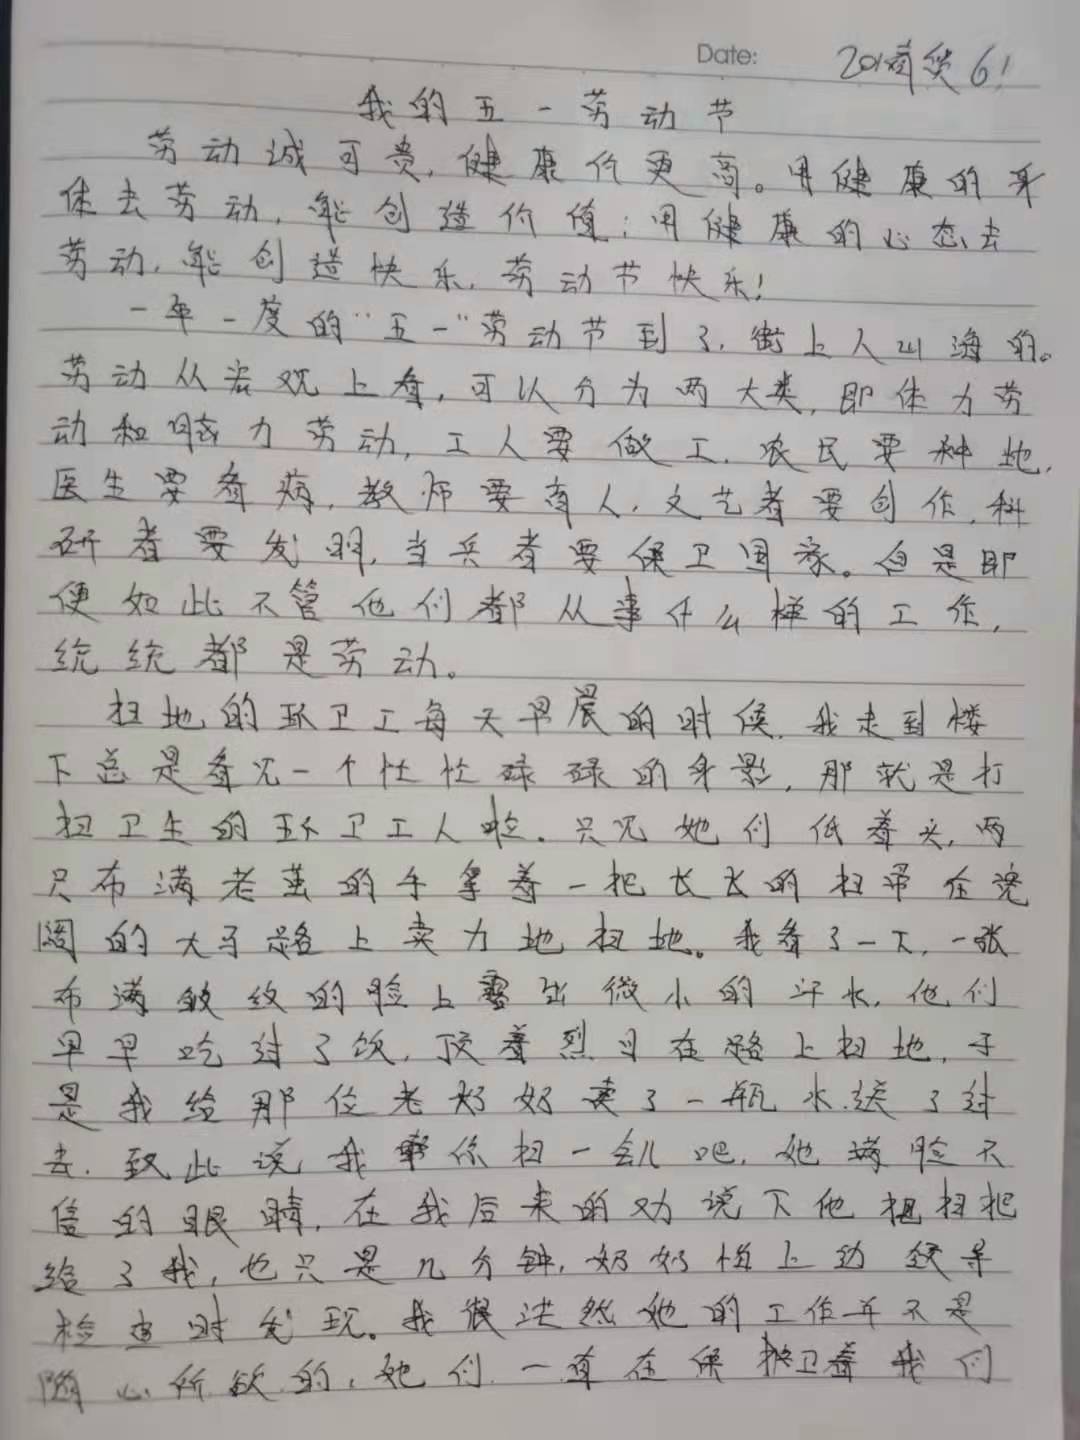 Date:
我的五一劳动节
劳动诚可贵,健康价更高。用健康的身
体去劳动,能创造价值;用健康的心态去
劳动,能创造快乐,劳动节快乐!
一年一度的“五一”劳动节到了,街上人山海的。
劳动从宏观上看,可以分为两大类,即体力劳
动和脑力劳动,工人要做工,农民要种地,
医生要看病,教师要育人,文艺者要创作,科
研者要发明,当兵者要保卫国家。但是即
便如此不管他们都从事什么样的工作,
统统都是劳动。
扫地的环卫工每天早晨的时候,我走到楼
下总是看见一个忙忙碌碌的身影,那就是打
扫卫生的环卫工人啦.只见她们低着头,两
只布满老茧的手拿着一把长长的扫帚在宽
阔的大马路上卖力地扫地。我看了一下,一张
布满皱纹的脸上露出微小的汗水,他们
早早吃过了饭,顶着烈日在路上扫地,于
是我给那位老奶奶买了一瓶水送了过
去.致此说我帮你扫一会儿吧,她满脸不
信的眼睛,在我后来的劝说下他把扫把
给了我,也只是几分钟,奶奶马上边
检查时发现。我很决然她的工作并不是
随心所欲的,她们一直在保护卫着我们